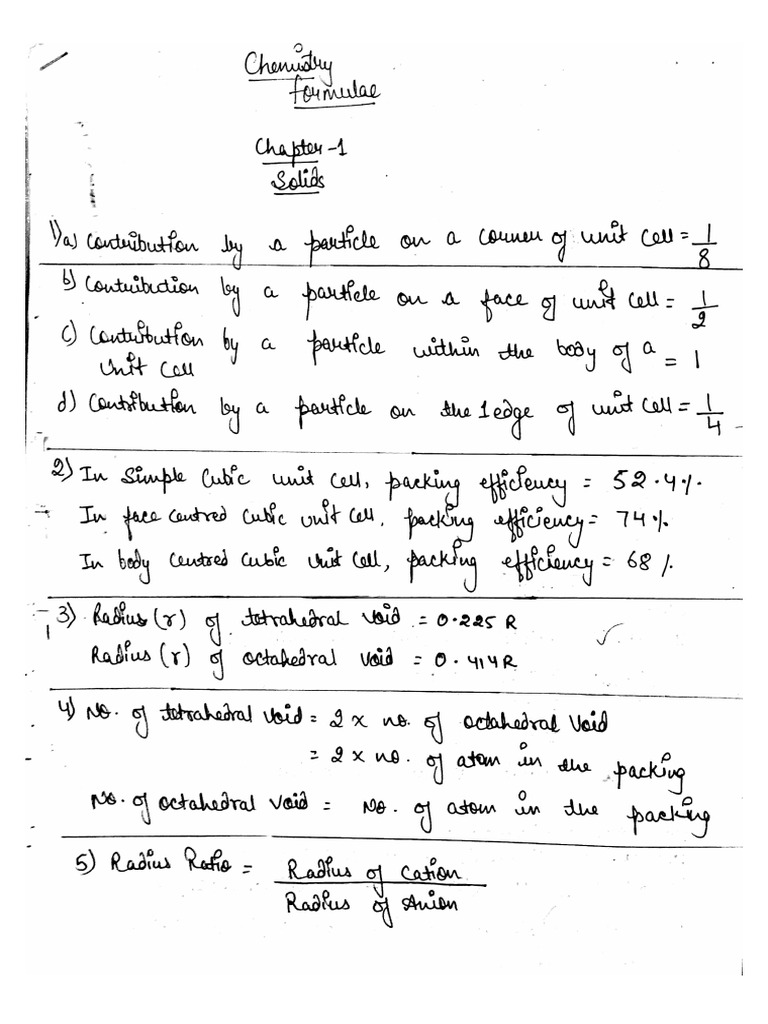 Chemistry
Formulae
Chapter-1
Solids
1) a) Contribution by a particle on a corner of unit cell = 1/8
b) Contribution by a particle on a face of unit cell = 1/2
c) Contribution by a particle within the body of a
unit cell = 1
d) Contribution by a particle on the 1 edge of unit cell = 1/4
2) In Simple Cubic unit cell, packing efficiency = 52.4%.
In face centred cubic unit cell, packing efficiency = 74%.
In body centred cubic unit cell, packing efficiency = 68%.
3) Radius (r) of tetrahedral void = 0.225 R
Radius (r) of octahedral void = 0.414 R
4) No. of tetrahedral void = 2 x no. of octahedral void
= 2 x no. of atom in the packing
No. of octahedral void = No. of atom in the packing
5) Radius Ratio = Radius of Cation
Radius of Anion